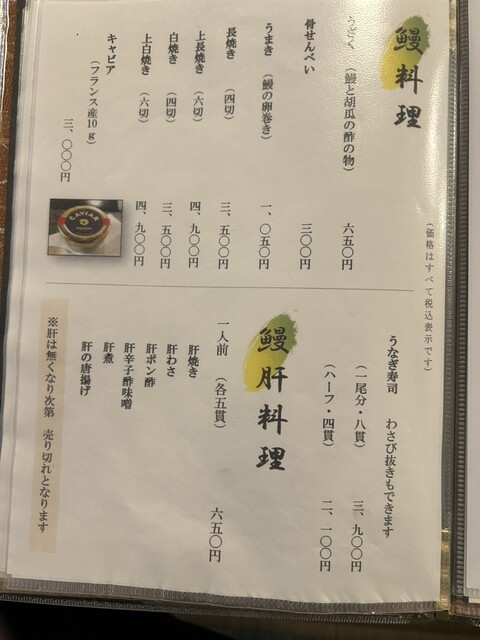 鰻料理
うざく （鰻と胡瓜の酢の物） 六五〇円
骨せんべい 三〇〇円
うまき （鰻の卵巻き） 一、〇五〇円
長焼き （四切） 三、五〇〇円
上長焼き （六切） 四、九〇〇円
白焼き （四切） 三、五〇〇円
上白焼き （六切） 四、九〇〇円
キャビア
（フランス産10ｇ） 三、〇〇〇円
CAVIAR
（価格はすべて税込表示です）
うなぎ寿司 わさび抜きもできます
（一尾分・八貫） 三、九〇〇円
（ハーフ・四貫） 二、一〇〇円
鰻肝料理
一人前 （各五貫） 六五〇円
肝焼き
肝わさ
肝ポン酢
肝辛子酢味噌
肝煮
肝の唐揚げ
※肝は無くなり次第 売り切れとなります